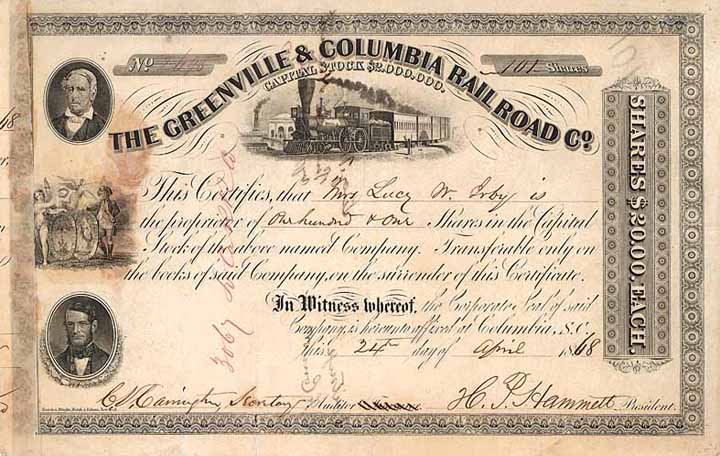 No
101 Shares
THE GREENVILLE & COLUMBIA RAIL ROAD Co.
CAPITAL STOCK $2,000,000.
This Certifies, that Mrs Lucy W. Irby is
the proprietor of One hundred & One Shares in the Capital
Stock of the above named Company. Transferable only on
the books of said Company, on the surrender of this Certificate.
In Witness whereof, the Corporate Seal of said
Company is hereunto affixed at Columbia, S.C.
This 24th day of April 1868
Auditor H. P. Hammett President.
SHARES $20.00. EACH.